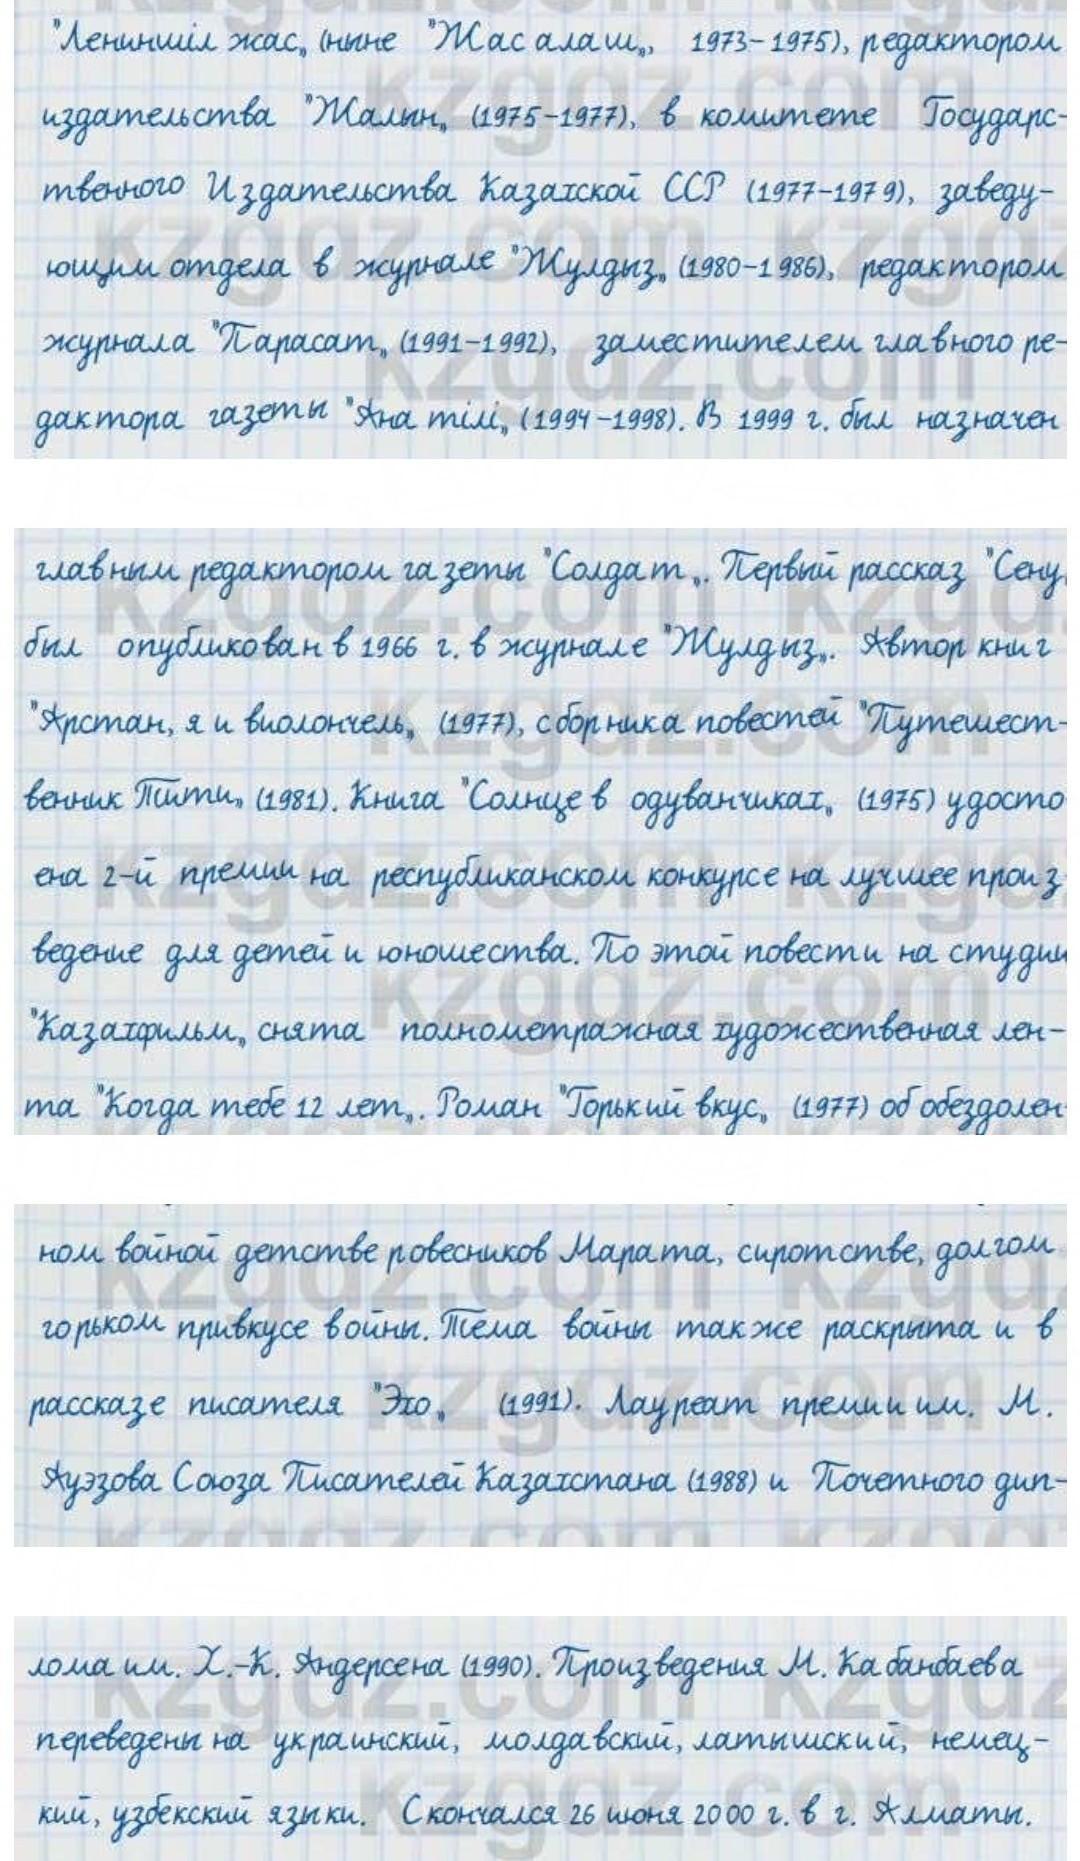 "Лениншіл жас„ (ныне "Жас алаш„, 1973-1975), редактором
издательства "Жалын„ (1975-1977), в комитете Государс-
твенного Издательства Казахской ССР (1977-1979), заведу-
ющим отдела в журнале "Жулдыз„ (1980-1986), редактором
журнала "Парасат„ (1991-1992), заместителем главного ре-
дактора газеты "Ана тілі„ (1994-1998). В 1999 г. был назначен
главным редактором газеты "Солдат„. Первый рассказ "Сену
был опубликован в 1966 г. в журнале "Жулдыз„. Автор книг
"Арстан, я и виолончель„ (1977), сборника повестей "Путешест-
венник Тити„ (1981). Книга "Солнце в одуванчиках„ (1975) удосто
ена 2-й премии на республиканском конкурсе на лучшее произ
ведение для детей и юношества. По этой повести на студии
"Казахфильм„ снята полнометражная художественная лен-
та "Когда тебе 12 лет„. Роман "Горький вкус„ (1977) об обездолен-
ном войной детстве ровесников Марата, сиротстве, долгом
горьком привкусе войны. Тема войны также раскрыта и в
рассказе писателя "Эхо„ (1991). Лауреат премии им. М.
Ауэзова Союза Писателей Казахстана (1988) и Почетного дип-
лома им. Х.-К. Андерсена (1990). Произведения М. Кабанбаева
переведены на украинский, молдавский, латышский, немец-
кий, узбекский языки. Скончался 26 июня 2000 г. в г. Алматы.
kzgdz.com